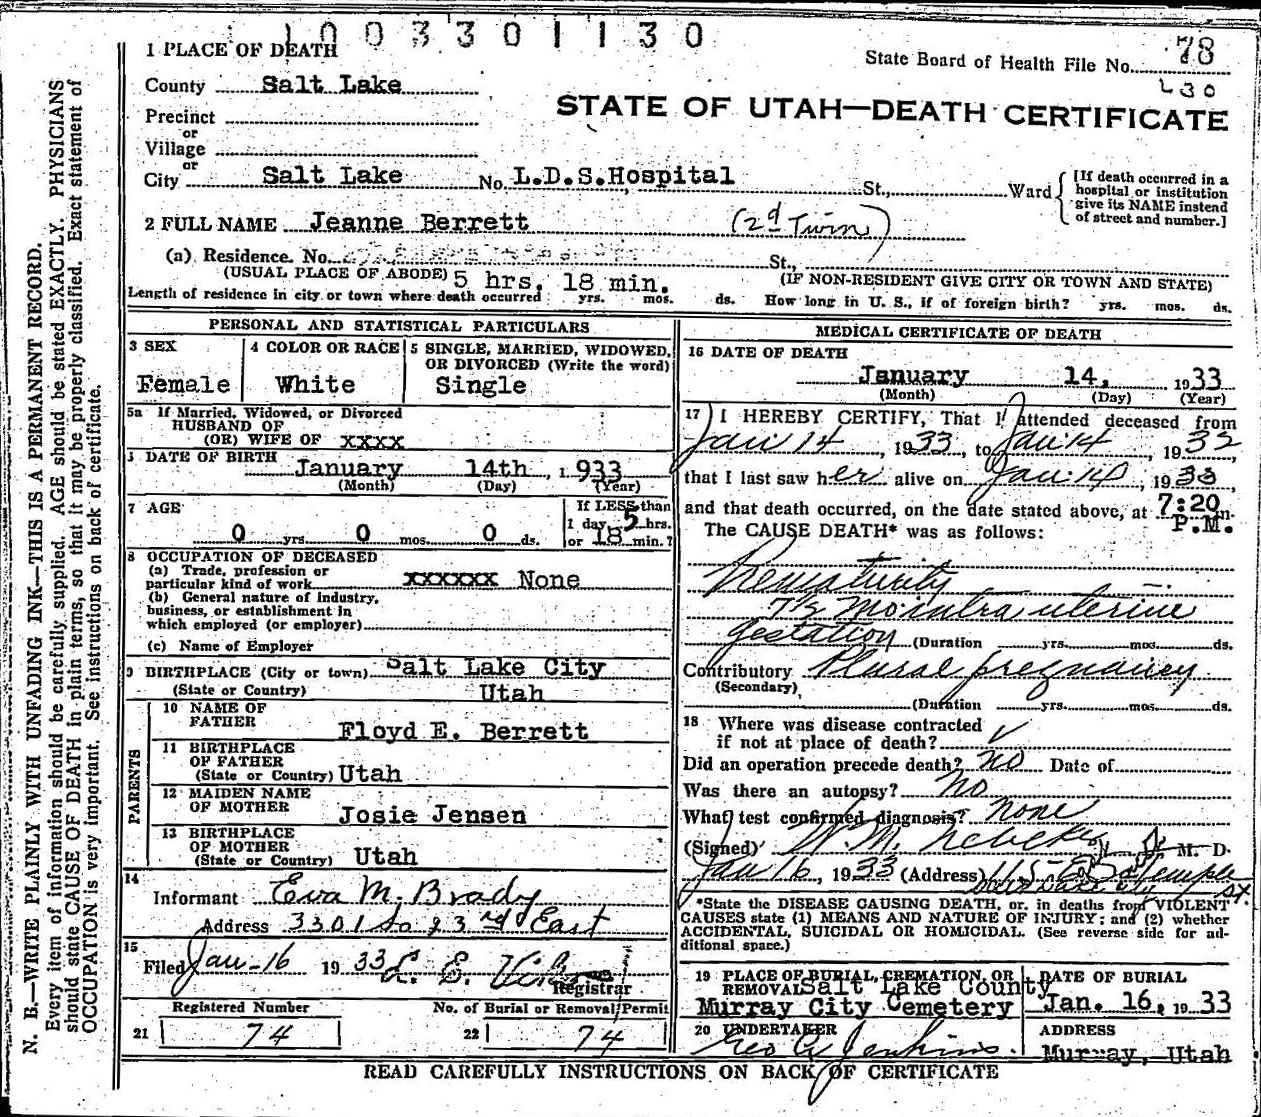 1003301130
1 PLACE OF DEATH
State Board of Health File No. 78
230
County Salt Lake
STATE OF UTAH—DEATH CERTIFICATE
Precinct
or
Village
or
City Salt Lake No. L.D.S.Hospital St., Ward
[If death occurred in a hospital or institution give its NAME instend of street and number.]
2 FULL NAME Jeanne Berrett (2d Twin)
(a) Residence. No. St.,
(USUAL PLACE OF ABODE) 5 hrs. 18 min. (IF NON-RESIDENT GIVE CITY OR TOWN AND STATE)
Length of residence in city or town where death occurred yrs. mos. ds. How long in U. S., if of foreign birth? yrs. mos. ds.
PERSONAL AND STATISTICAL PARTICULARS
3 SEX
Female
4 COLOR OR RACE
White
5 SINGLE, MARRIED, WIDOWED,
OR DIVORCED (Write the word)
Single
5a If Married, Widowed, or Divorced
HUSBAND OF
(OR) WIFE OF xxxx
DATE OF BIRTH
January 14th, 1933
(Month) (Day) (Year)
7 AGE
0 yrs. 0 mos. 0 ds.
If LESS than
1 day, 5 hrs.
or 18 min.?
8 OCCUPATION OF DECEASED
(a) Trade, profession or
particular kind of work xxxxxx None
(b) General nature of industry,
business, or establishment in
which employed (or employer)
(c) Name of Employer
9 BIRTHPLACE (City or town) Salt Lake City
(State or Country) Utah
PARENTS
10 NAME OF
FATHER Floyd E. Berrett
11 BIRTHPLACE
OF FATHER
(State or Country) Utah
12 MAIDEN NAME
OF MOTHER Josie Jensen
13 BIRTHPLACE
OF MOTHER
(State or Country) Utah
14
Informant Eva M. Brady
Address 3301 So 23rd East
15
Filed Jan-16 1933 L. E.
Registrar
Registered Number
21 74
No. of Burial or Removal Permit
22 74
MEDICAL CERTIFICATE OF DEATH
16 DATE OF DEATH
January 14, 1933
(Month) (Day) (Year)
17 I HEREBY CERTIFY, That I attended deceased from
Jan 14, 1933, to Jan 14, 1933,
that I last saw her alive on Jan 14, 1933,
and that death occurred, on the date stated above, at 7:20 m.
P.M.
The CAUSE DEATH* was as follows:
Prematurity
7½ Mo intra uterine
gestation (Duration yrs. mos. ds.
Contributory Plural pregnancy
(Secondary)
(Duration yrs. mos. ds.
18 Where was disease contracted
if not at place of death? ✓
Did an operation precede death? no Date of
Was there an autopsy? no
What test confirmed diagnosis? none
(Signed) W. M. Nebeker M. D.
Jan 16, 1933 (Address) 115 E So Temple
St.
*State the DISEASE CAUSING DEATH, or, in deaths from VIOLENT
CAUSES state (1) MEANS AND NATURE OF INJURY; and (2) whether
ACCIDENTAL, SUICIDAL OR HOMICIDAL. (See reverse side for ad-
ditional space.)
19 PLACE OF BURIAL, CREMATION, OR
REMOVAL Salt Lake County
Murray City Cemetery
DATE OF BURIAL
Jan. 16, 1933
20 UNDERTAKER
Geo A Jenkins.
ADDRESS
Murray, Utah
READ CAREFULLY INSTRUCTIONS ON BACK OF CERTIFICATE
N. B.—WRITE PLAINLY WITH UNFADING INK—THIS IS A PERMANENT RECORD.
Every item of information should be carefully supplied. AGE should be stated EXACTLY. PHYSICIANS
should state CAUSE OF DEATH in plain terms, so that it may be properly classified. Exact statement of
OCCUPATION is very important. See instructions on back of certificate.